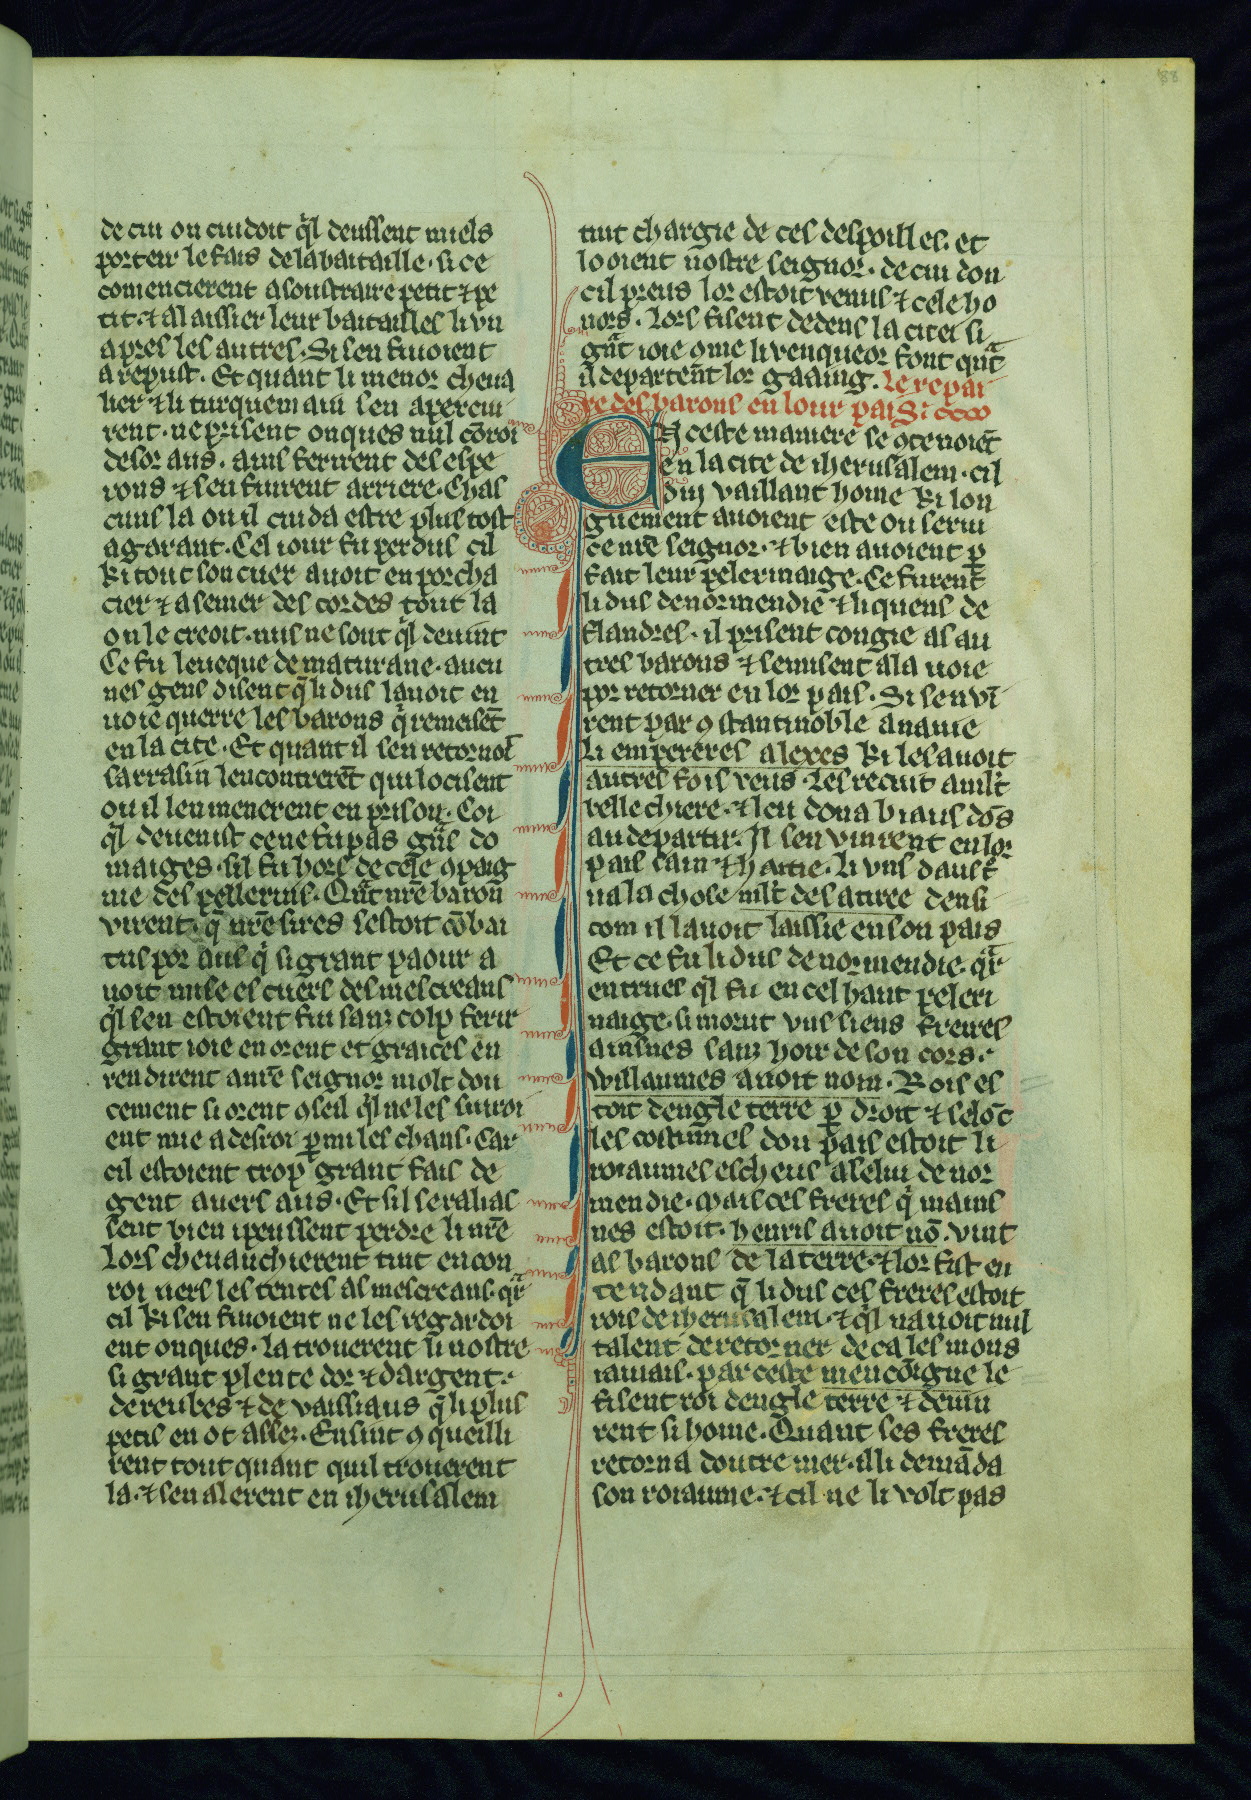 de cui on cuidoit ql deussent miels
porteir le fais de la bataille. si ce
comencierent a soustraire petit ⁊ pe
tit. ⁊ a laissier leur baitailles li vn
apres les autres. Si sen fuioient
a repust. Et quant li menor cheua
lier ⁊ li turquem aui sen apercui
rent. ne prisent onques nul cōroi
desor aus. ains ferirent des espe
rons ⁊ sen fuirent arriere. Chas
cuns la ou il cuida estre plus tost
a garant. Cel iour fu perdus cil
ki tout son cuer auoit en porcha
cier ⁊ a semer des cordes tout la
ou le creoit. nus ne sout ql deuint
Ce fu leueque de maturane. aucu
nes gens disent q̄ li dus lauoit en
uoie querre les barons q̇ remesēt
en la cite. Et quant il sen retornoit
sarrasin lencontrerēt qui locisent
ou il lenmenerent en prison. Coi
ql deuenist ce ne fu pas gns do
maiges. sil fu hors de cele ꝯpaig
nie des pellerins. Qūt nr̄e baron
virent. q̄ nr̄e sires sestoit cōbai
tus por aus q̇ si grant paour a
uoit mise es cuers des mescreans
ql sen estoient fui sanz colp ferir
grant ioie en orent et graices en
rendirent a nr̄e seignor molt dou
cement si orent ꝯseil ql ne les suiroi
ent mie a desroi ꝑmi les chans. Car
cil estoient trop grant fais de
gent auers aus. Et sil se ralias
sent bien i peussent perdre li nr̄e
Lors cheuauchierent tuit en con
roi uers les tentes as mescreans. qr
cil ki sen fuioient ne les regardoi
ent onques. la trouerent li nostre
si grant plente dor ⁊ dargent.
de reubes ⁊ de vaissiaus q̄ li plus
petis en ot assez. Ensint ꝯqueilli
rent tout quant quil trouerent
la. ⁊ sen alerent en iherusalem
tuit chargie de ces despoilles. et
looient nostre seignor. de cui don
cil preus lor estoit venus ⁊ cele ho
nors. Lors fisent dedens la citei si
gnt ioie ꝯme li venqueor font qnt
il departent lor gaaing. Le repai
re des barons en lour pais
En ceste maniere se ꝯtenoiēt
en la cite de iherusalem. cil
vaillant home ki lon
guement auoient este ou serui
ce nr̄e seignor. ⁊ bien auoient ꝑ
fait leur pelerinaige. Ce furent
li dus de normendie ⁊ li quens de
flandres. il prisent congie as au
tres barons ⁊ se misent a la uoie
por retorner en lor pais. Si sen vī
rent par ꝯstantinoble a nauie
li empereres alexes ki les auoit
autres fois veus. Les reciut a mlt
velle chiere. ⁊ leu dona biaus dōs
au departir. Il sen vinrent en lor
pais sain ⁊ haitie. Li vns daus t
ua la chose mlt desatiree densi
com il lauoit laissie en son pais
Et ce fu li dus de normendie. qr
entrues ql fu en cel haut peleri
naige. si morut vns siens freires
ainsnes sanz hoir de son cors.
willaumes auoit nom. Rois es
toit dengle terre ꝑ droit ⁊ selōc
les costumes dou pais estoit li
roiaumes escheus a selui de nor
mendie. Mais ces freres q̇ mains
nes estoit. henris auoit nō. vint
as barons de la terre. ⁊ lor fist en
tendant q̄ li dus ces freres estoit
rois de iherusalem. ⁊ ql nauoit nul
talent de retorner de ca les mons
iamais. par ceste mencōigne le
fisent roi dengle terre ⁊ deuin
rent si home. Quant ses freres
retorna doutre mer. il li demāda
son roiaume. ⁊ cil ne li volt pas